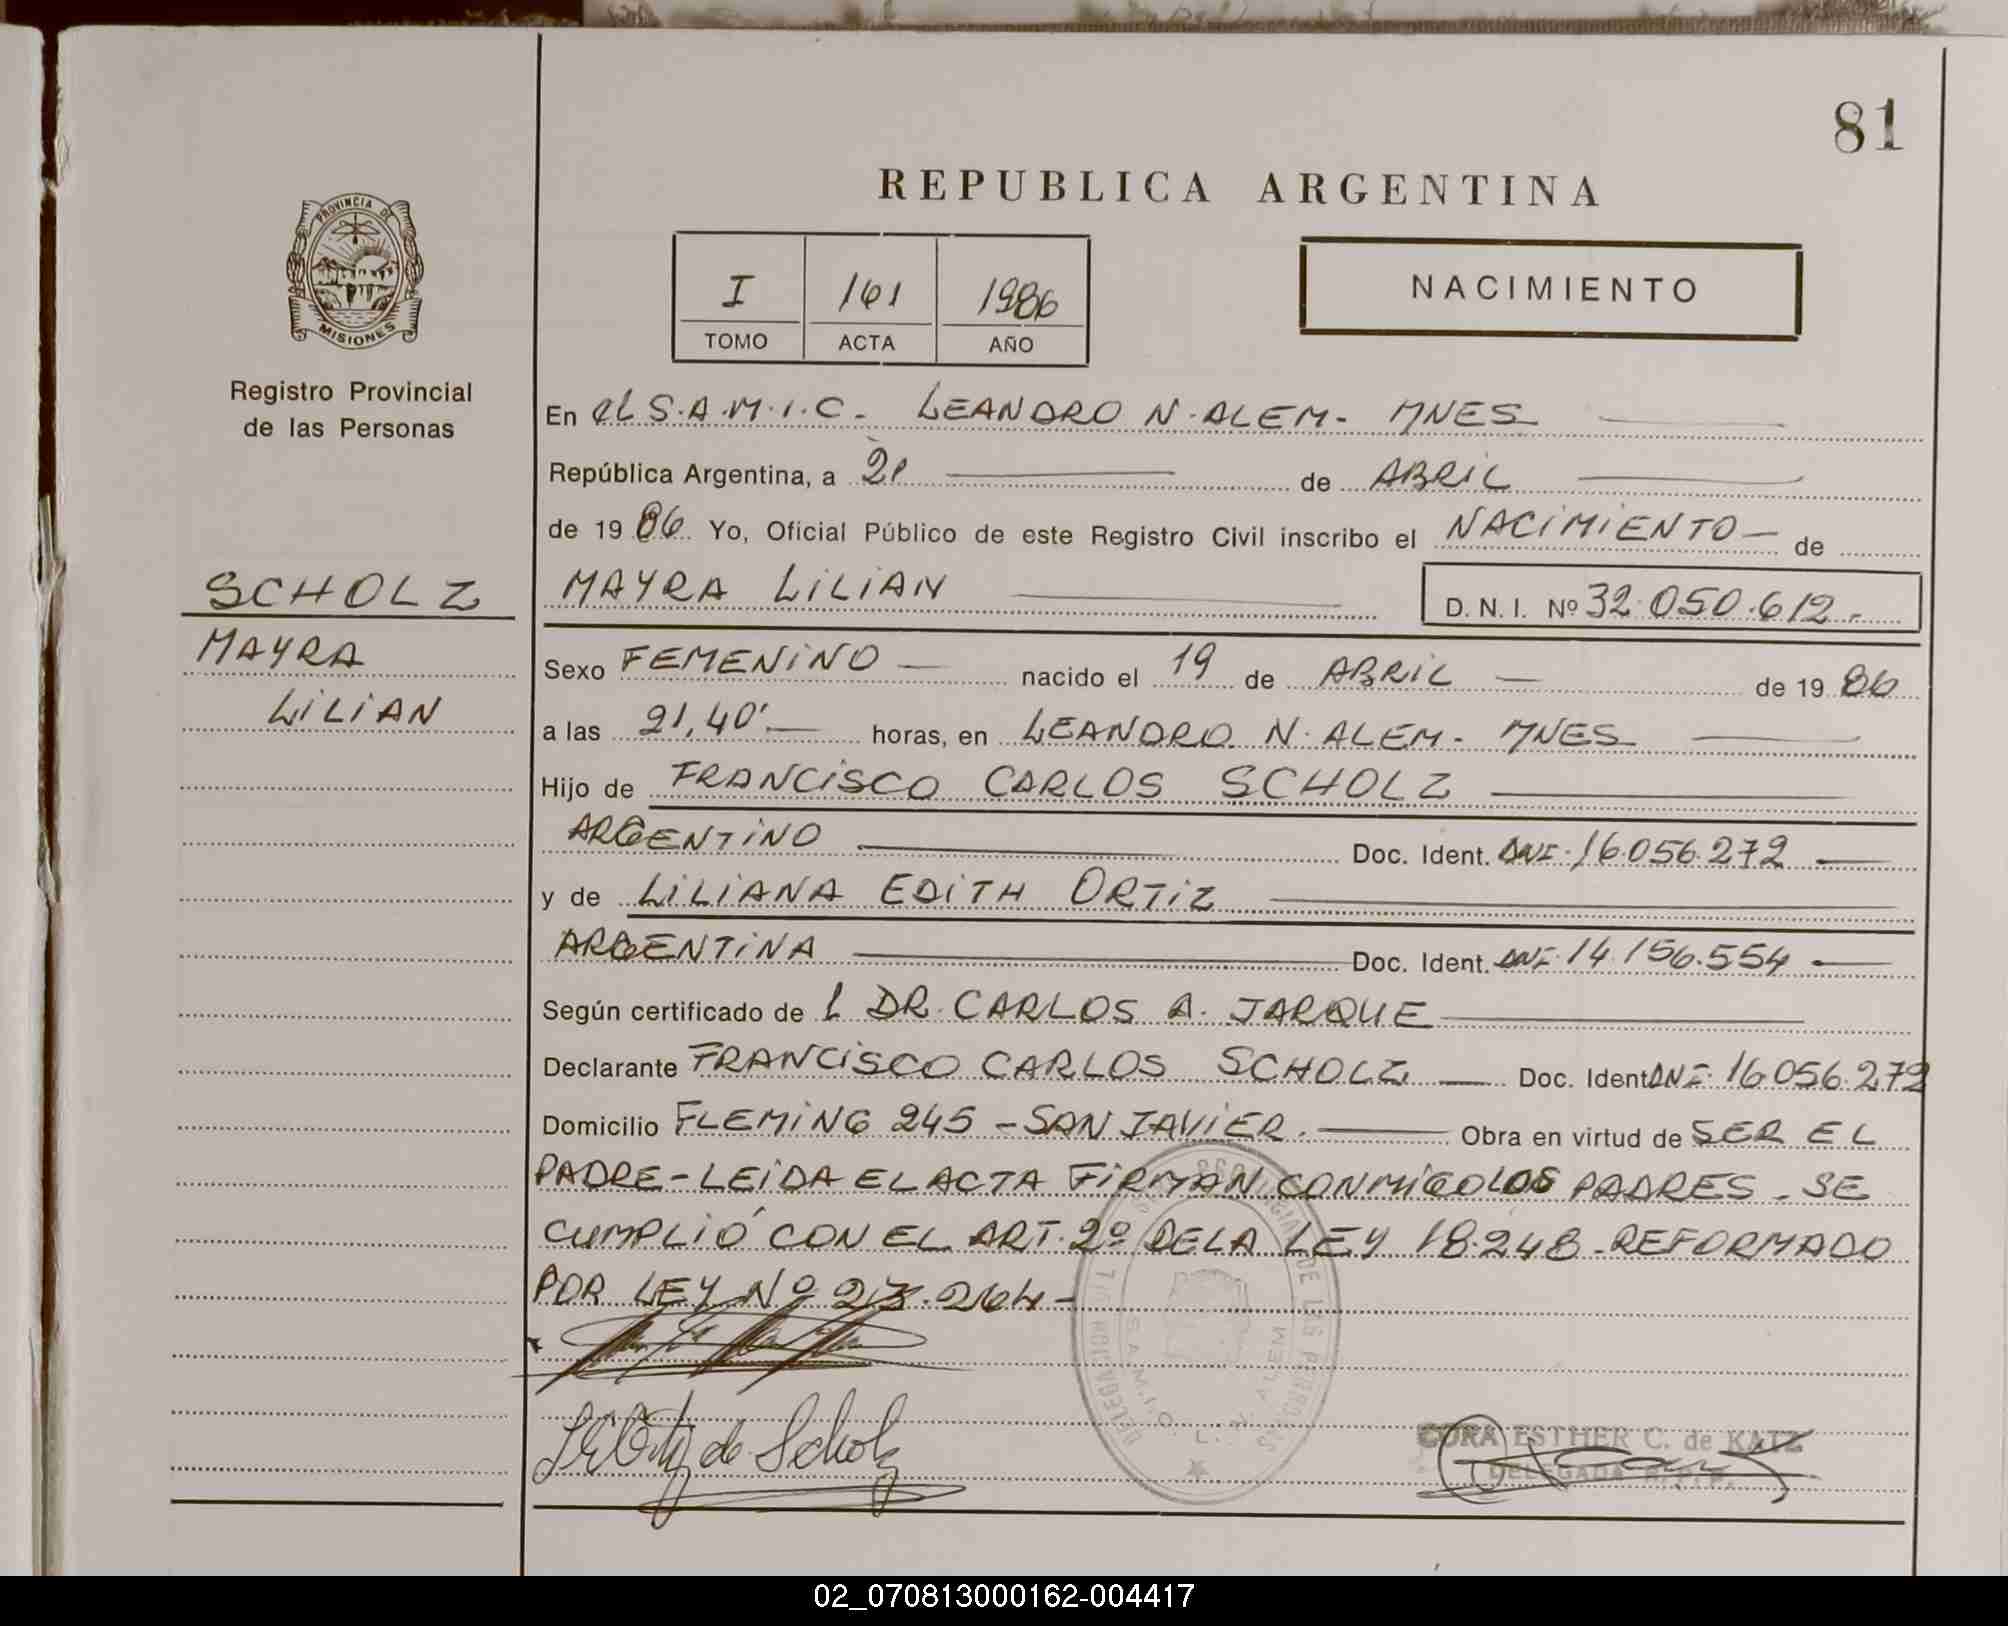 81
REPUBLICA ARGENTINA
PROVINCIA DE
MISIONES
Registro Provincial
de las Personas
I 161 1986
TOMO ACTA AÑO
NACIMIENTO
En el S.A.M.I.C. LEANDRO N. ALEM - MNES
República Argentina, a 21 de ABRIL
de 1986 Yo, Oficial Público de este Registro Civil inscribo el NACIMIENTO - de
SCHOLZ
MAYRA
LILIAN
MAYRA LILIAN D. N. I. Nº 32.050.612.-
Sexo FEMENINO - nacido el 19 de ABRIL - de 1986
a las 21,40' - horas, en LEANDRO N. ALEM - MNES
Hijo de FRANCISCO CARLOS SCHOLZ
ARGENTINO Doc. Ident. DNI. 16.056.272
y de LILIANA EDITH ORTIZ
ARGENTINA Doc. Ident. DNI. 14.156.554
Según certificado de l DR. CARLOS A. JARQUE
Declarante FRANCISCO CARLOS SCHOLZ Doc. Ident DNI. 16.056.272
Domicilio FLEMING 245 - SAN JAVIER. Obra en virtud de SER EL
PADRE - LEIDA EL ACTA FIRMAN CONMIGO LOS PADRES - SE
CUMPLIÓ CON EL ART. 2º DE LA LEY 18.248 - REFORMADO
POR LEY Nº 23.264 -
S.A.M.I.C. L. N. ALEM
L E Ortiz de Scholz
CORA ESTHER C. de KATZ
DELEGADA R.P.P.
02_070813000162-004417